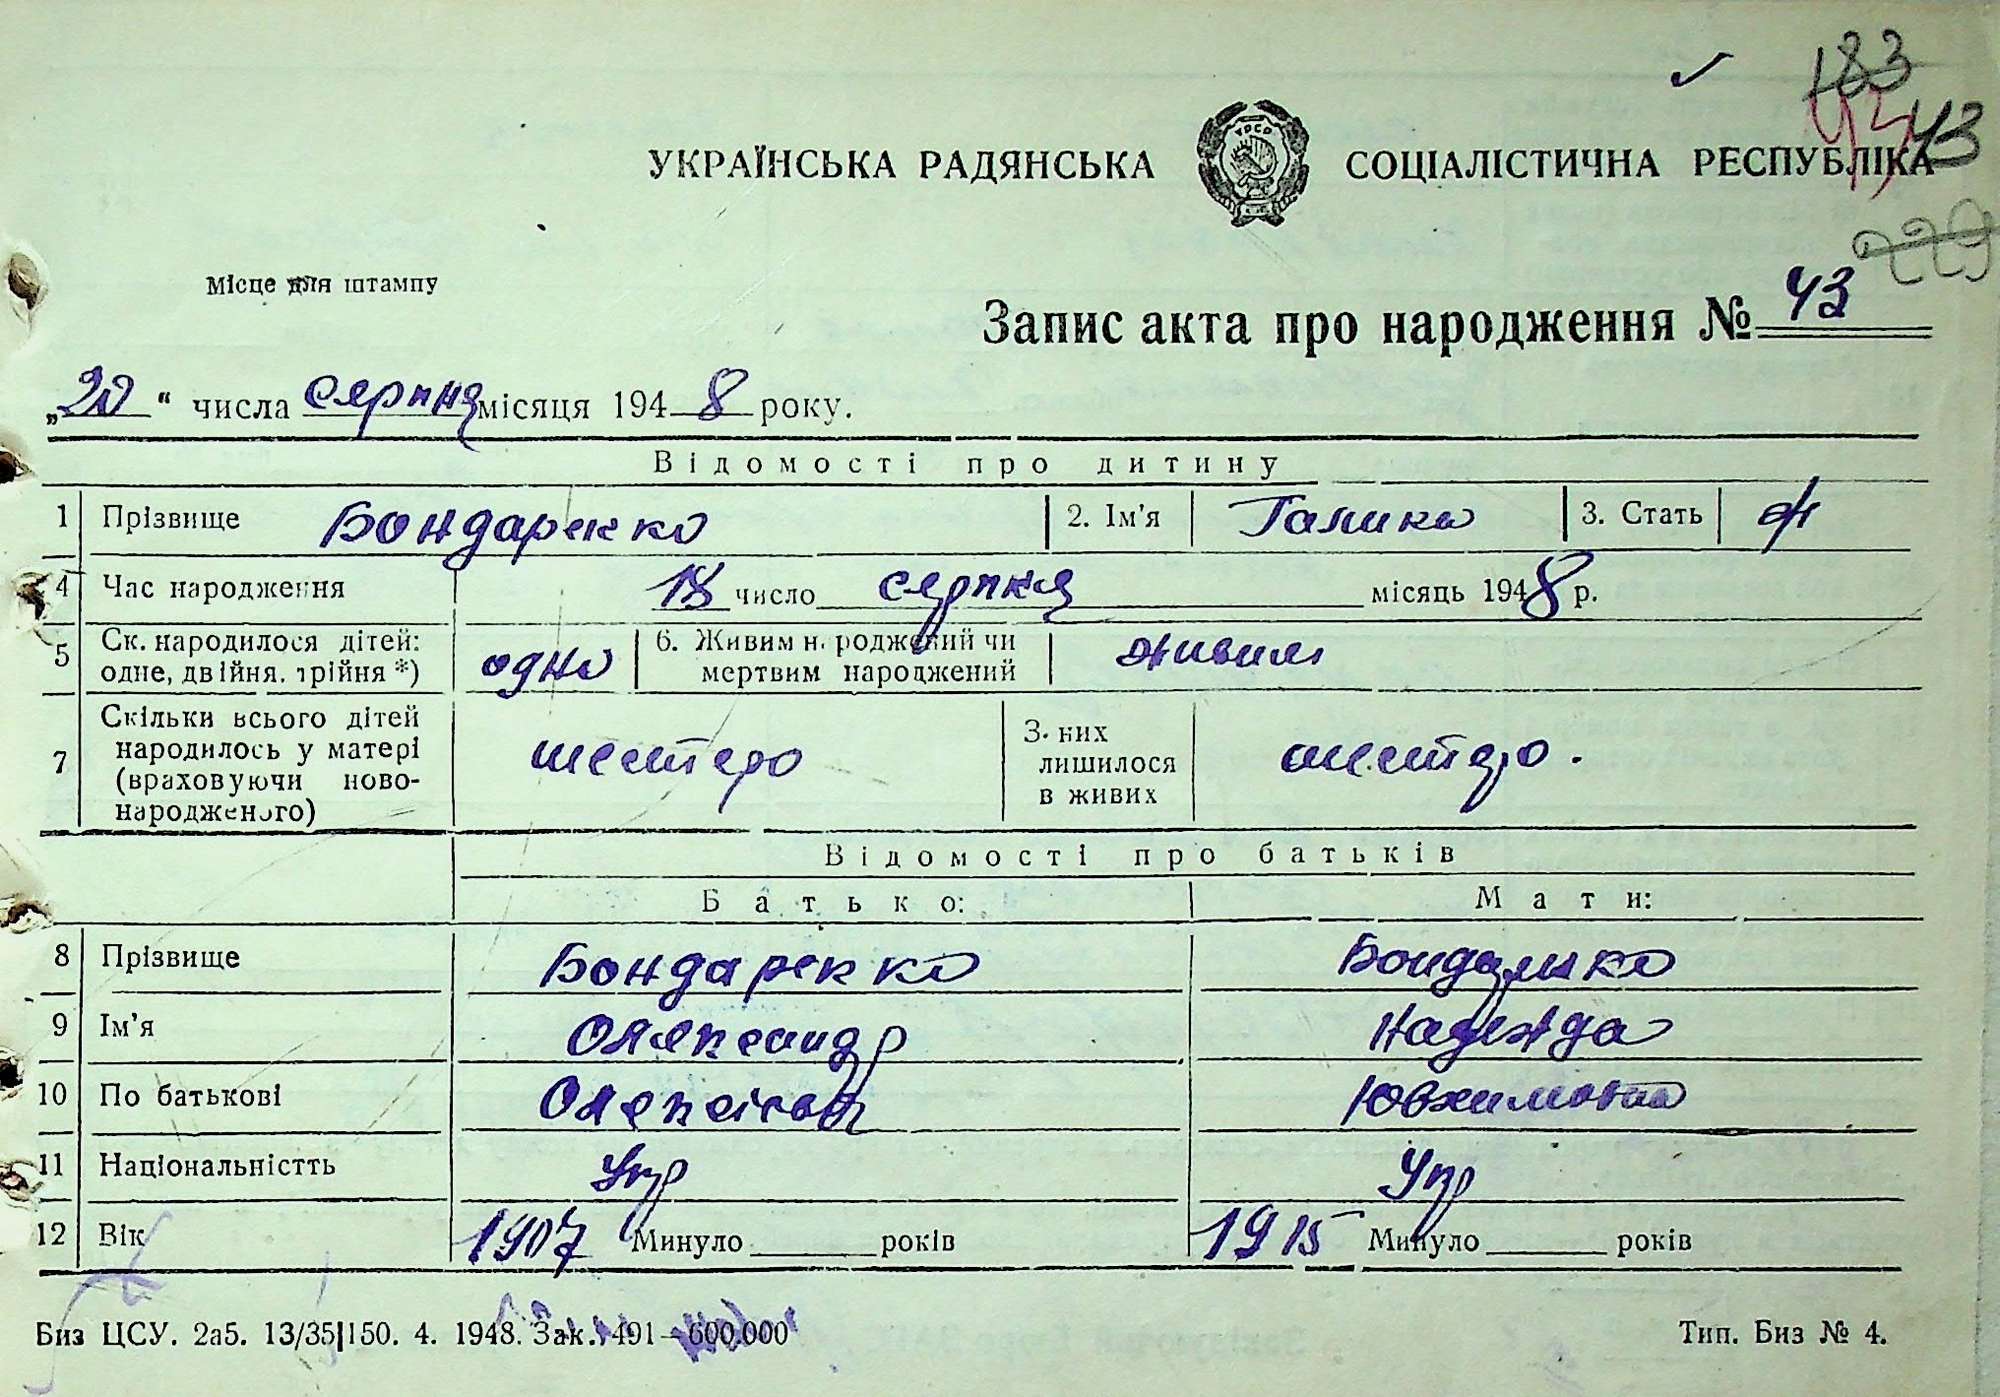 183
43 43
УКРАЇНСЬКА РАДЯНСЬКА СОЦІАЛІСТИЧНА РЕСПУБЛІКА
УРСР
229
Місце для штампу
Запис акта про народження № 43
„20“ числа серпня місяця 1948 року.
Відомості про дитину
1 Прізвище Бондаренко 2. Ім'я Галина 3. Стать ж
4 Час народження 18 число серпня місяць 1948 р.
5 Ск. народилося дітей: одне, двійня, трійня *) одно 6. Живим народжений чи мертвим народжений живим
7 Скільки всього дітей народилось у матері (враховуючи ново-народженого) шестеро З них лишилося в живих шестеро.
Відомості про батьків
Батько: Мати:
8 Прізвище Бондаренко Бондаренко
9 Ім'я Олександр Надежда
10 По батькові Олексієвич Ювхимовна
11 Національністть Укр Укр
12 Вік 1907 Минуло років 1915 Минуло років
Биз ЦСУ. 2а5. 13/35|150. 4. 1948. Зак. 491—600.000 Тип. Биз № 4.